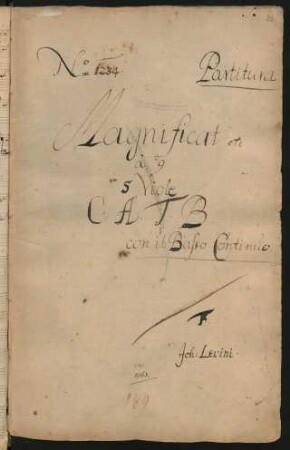 No. 1234
Partitura
Magnificat etc
à 9
5 Viole
C A T B
con il Basso Continuo
Joh: Levini.
189